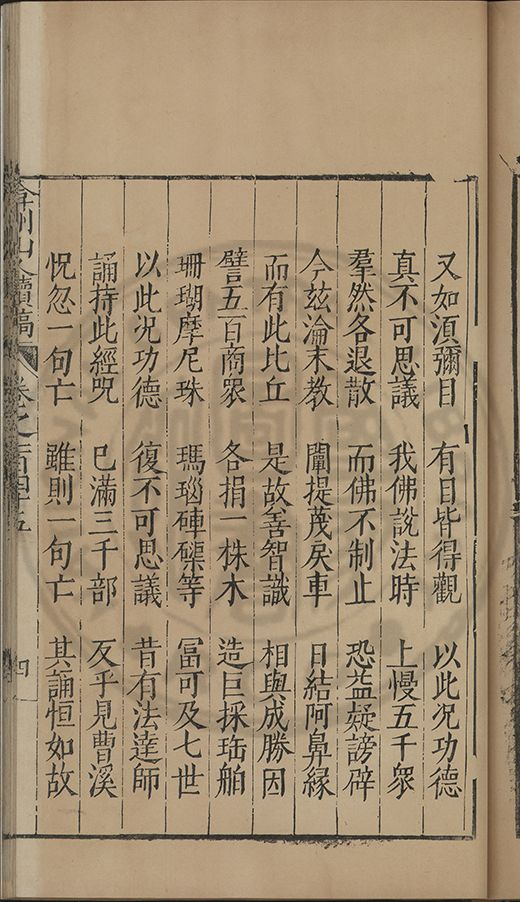 又如須彌目　有目皆得觀　以此况功德
真不可思議　我佛說法時　上慢五千衆
羣然各退散　而佛不制止　恐益疑謗辟
今兹淪末教　闡提蔑戾車　日結阿鼻緣
而有此比丘　是故善智識　相與成勝因
譬五百商衆　各捐一株木　造巨採珤舶
珊瑚摩尼珠　瑪瑙硨磲等　冨可及七世
以此况功德　復不可思議　昔有法達師
誦持此經咒　已滿三千部　及乎見曹溪
怳忽一句亡　雖則一句亡　其誦恒如故
弇州山人續稿　卷之一百四十五　四